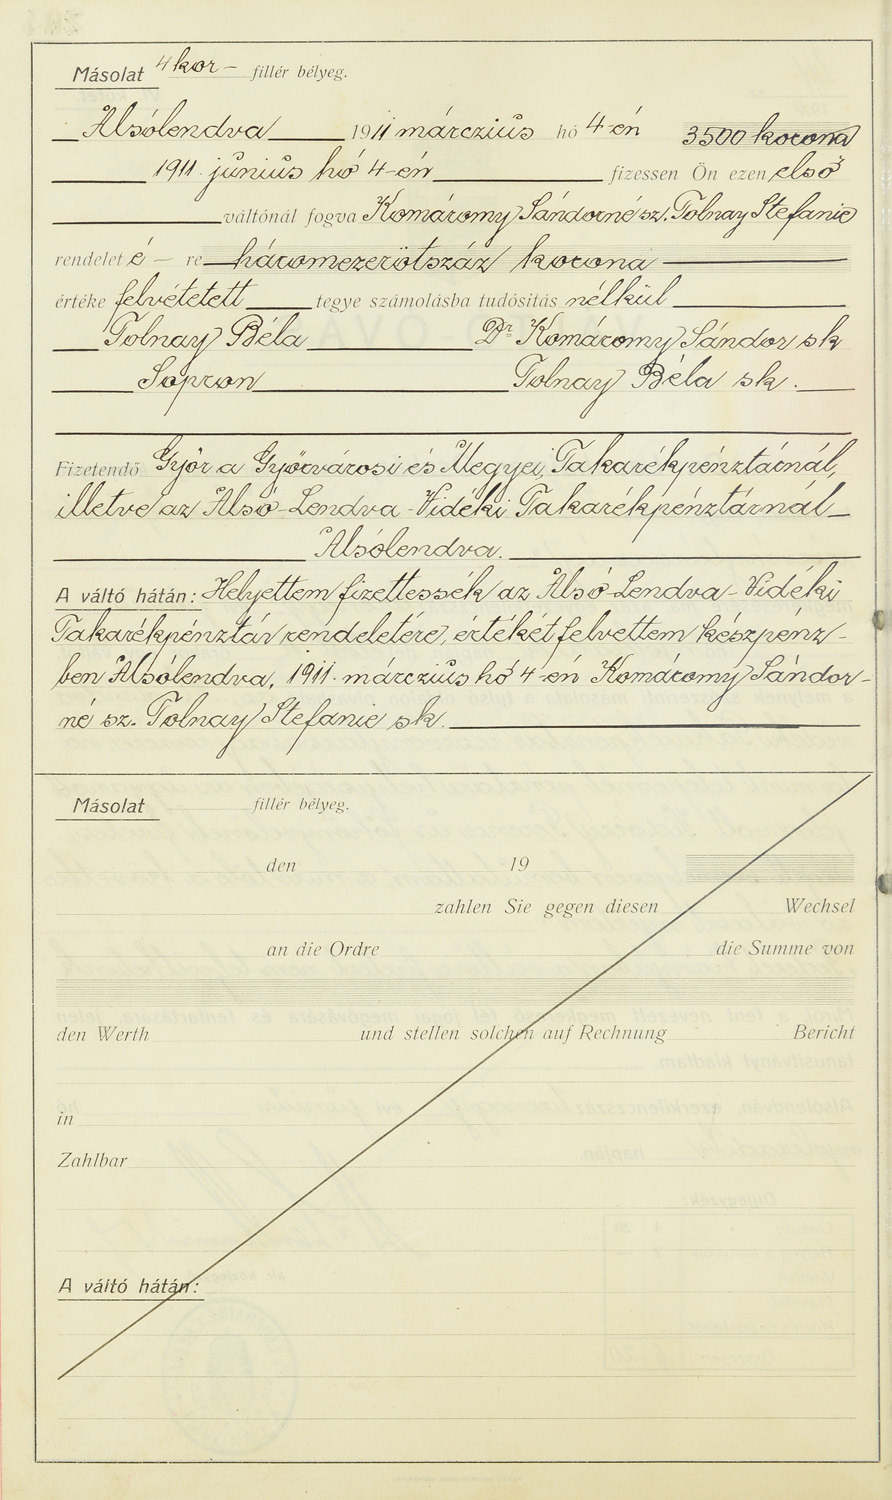 Másolat 4 kor – fillér bélyeg.
Alsólendva 1911 márczius hó 4-én 3500 korona
1911. junius hó 4-én fizessen Ön ezen első
váltónál fogva Komáromy Sándorné sz. Tolnay Stefanie
rendelet é – re háromezerötszáz korona
értéke felvétetett tegye számolásba tudósítás nélkül
Tolnay Béla Dr Komáromy Sándor sk
Sopron Tolnay Béla sk.
Fizetendő Győr a Győrvárosi és Megyei Takarékpénztárnál,
illetve az Alsó-Lendva-Vidéki Takarékpénztárnál
Alsólendva.
A váltó hátán: Helyettem fizettessék az Alsó-Lendva-Vidéki
Takarékpénztár rendeletére, értékét felvettem készpénz-
ben Alsólendva, 1911. márczius hó 4-én Komáromy Sándor-
né sz. Tolnay Stefanie sk.
Másolat fillér bélyeg.
den 19
zahlen Sie gegen diesen Wechsel
an die Ordre die Summe von
den Werth und stellen solchen auf Rechnung Bericht
in
Zahlbar
A váltó hátán: